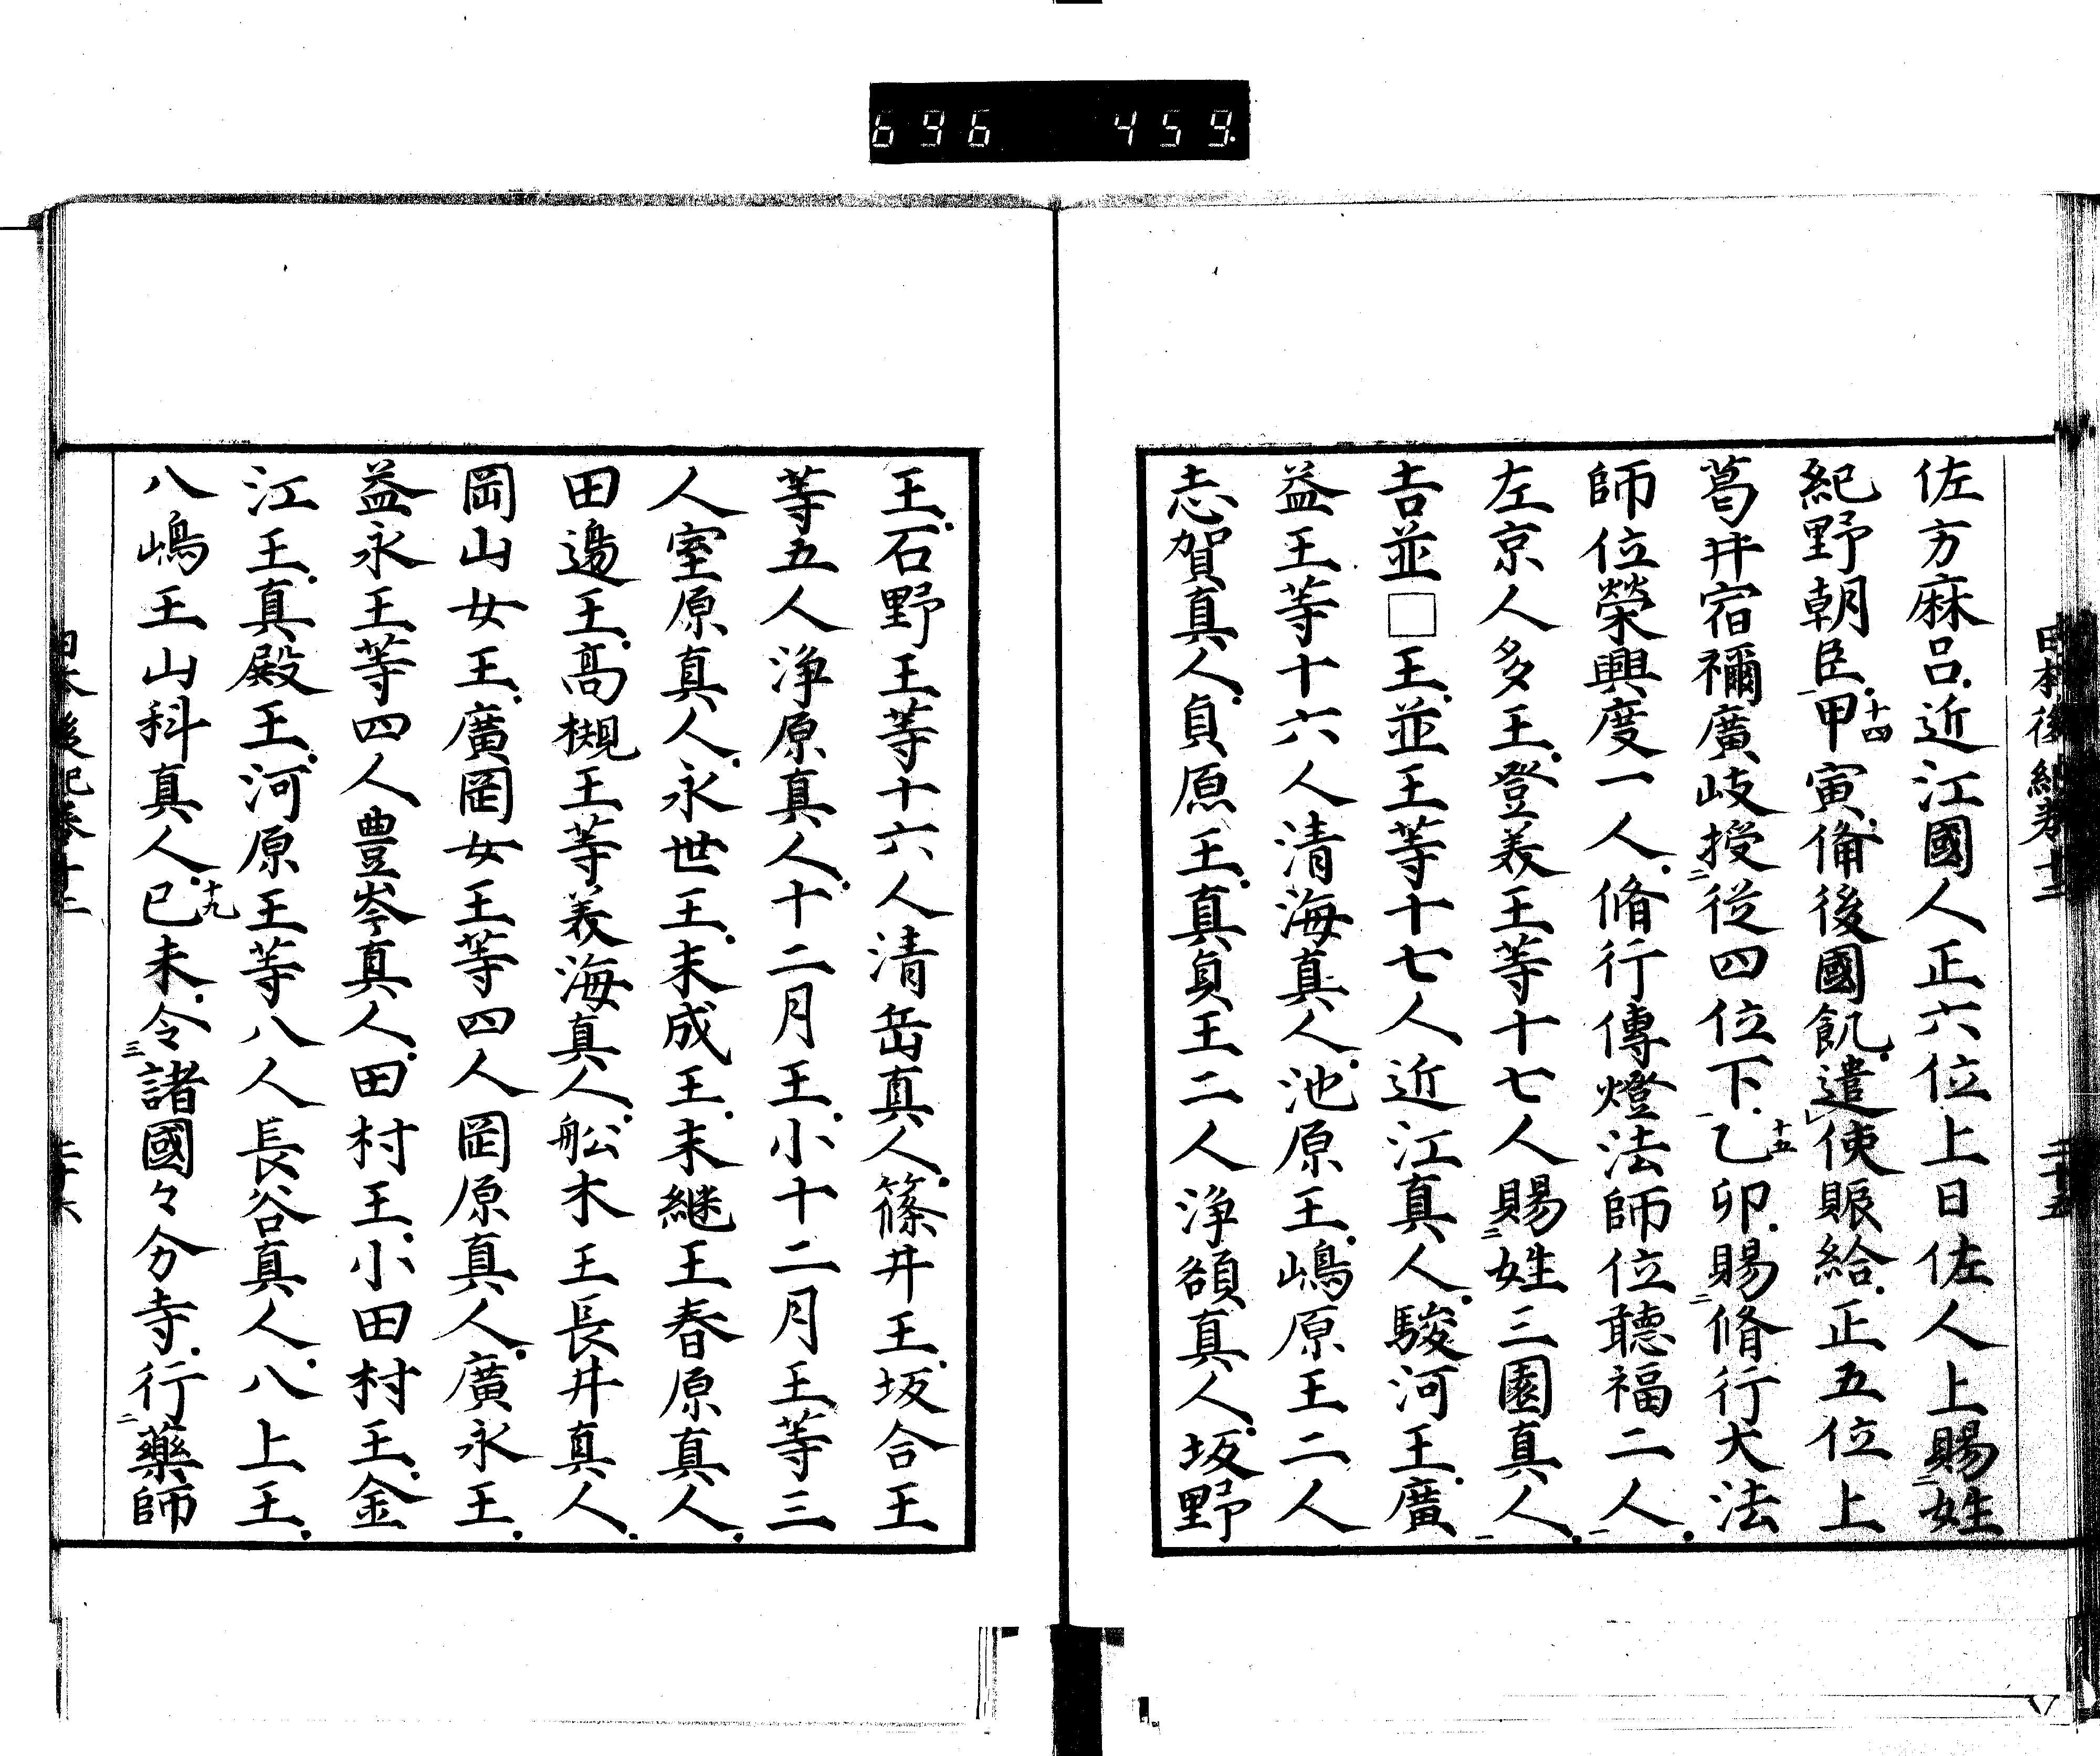 696 459
日本後紀卷十二 二十五
佐方麻呂近江國人正六位上日佐人上賜姓
紀野朝臣甲寅備後國飢遣使賑給正五位上
十四
葛井宿禰廣岐授從四位下乙卯賜脩行大法
十五
師位榮興度一人脩行傳燈法師位聽福二人
左京人多王登美王等十七人賜姓三園真人
吉並□王並王等十七人近江真人駿河王廣
益王等十六人清海真人池原王嶋原王二人
志賀真人貞原王真貞王二人淨額真人坂野
王石野王等十六人清岳真人篠井王坂合王
等五人淨原真人十二月王小十二月王等三
人室原真人永世王末成王末継王春原真人
田邊王高槻王等美海真人船木王長井真人
岡山女王廣岡女王等四人岡原真人廣永王
益永王等四人豊岑真人田村王小田村王金
江王真殿王河原王等八人長谷真人八上王
八嶋王山科真人已未令諸國々分寺行藥師
十九
日本後紀卷十二 二十六